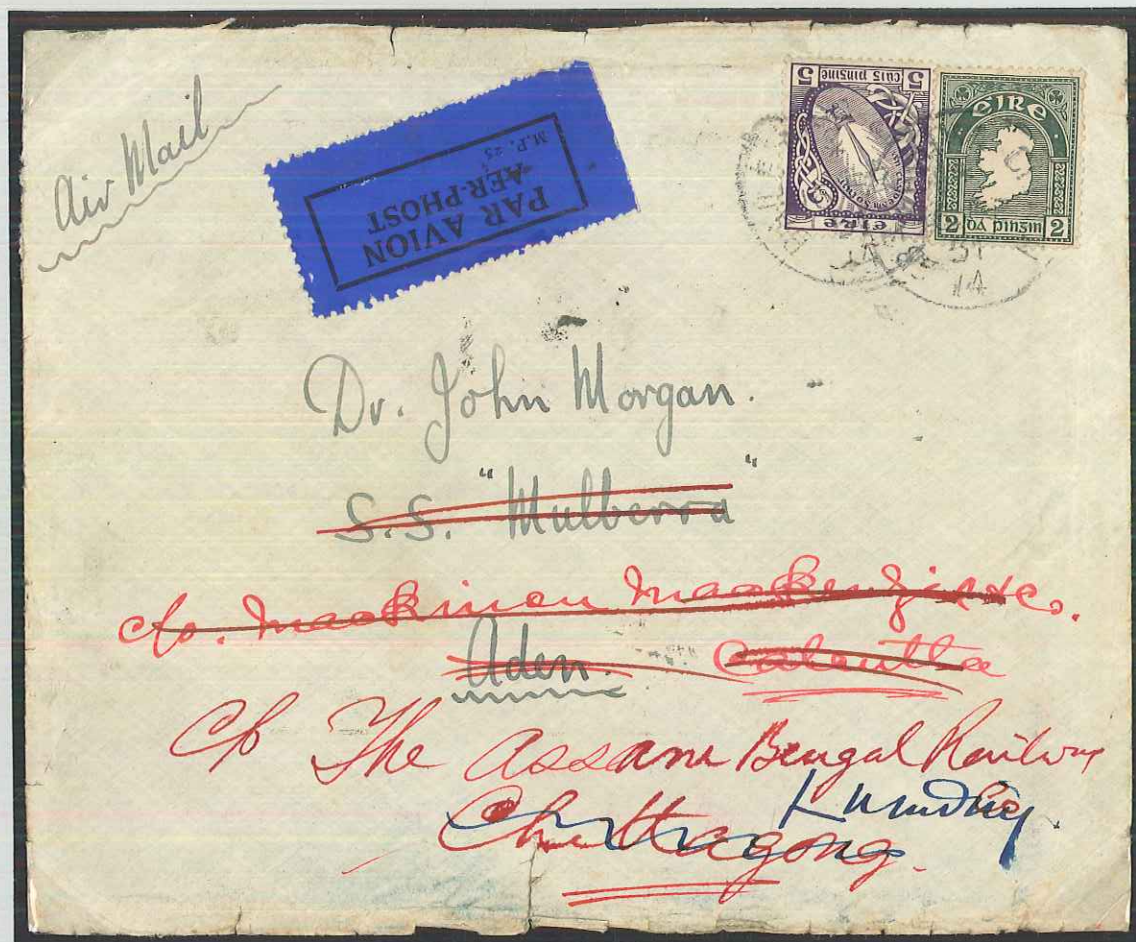 Air Mail
PAR AVION
AER-PHOST
M.P. 25
5 cúig pingine 5
éire
éire
2 dá pingin 2
Dr. John Morgan.
S.S. "Mulberra"
c/o. Mackinon Mackenzie & Co.
Aden. Calcutta
c/o The Assam Bengal Railway
Lumding.
Chittagong.